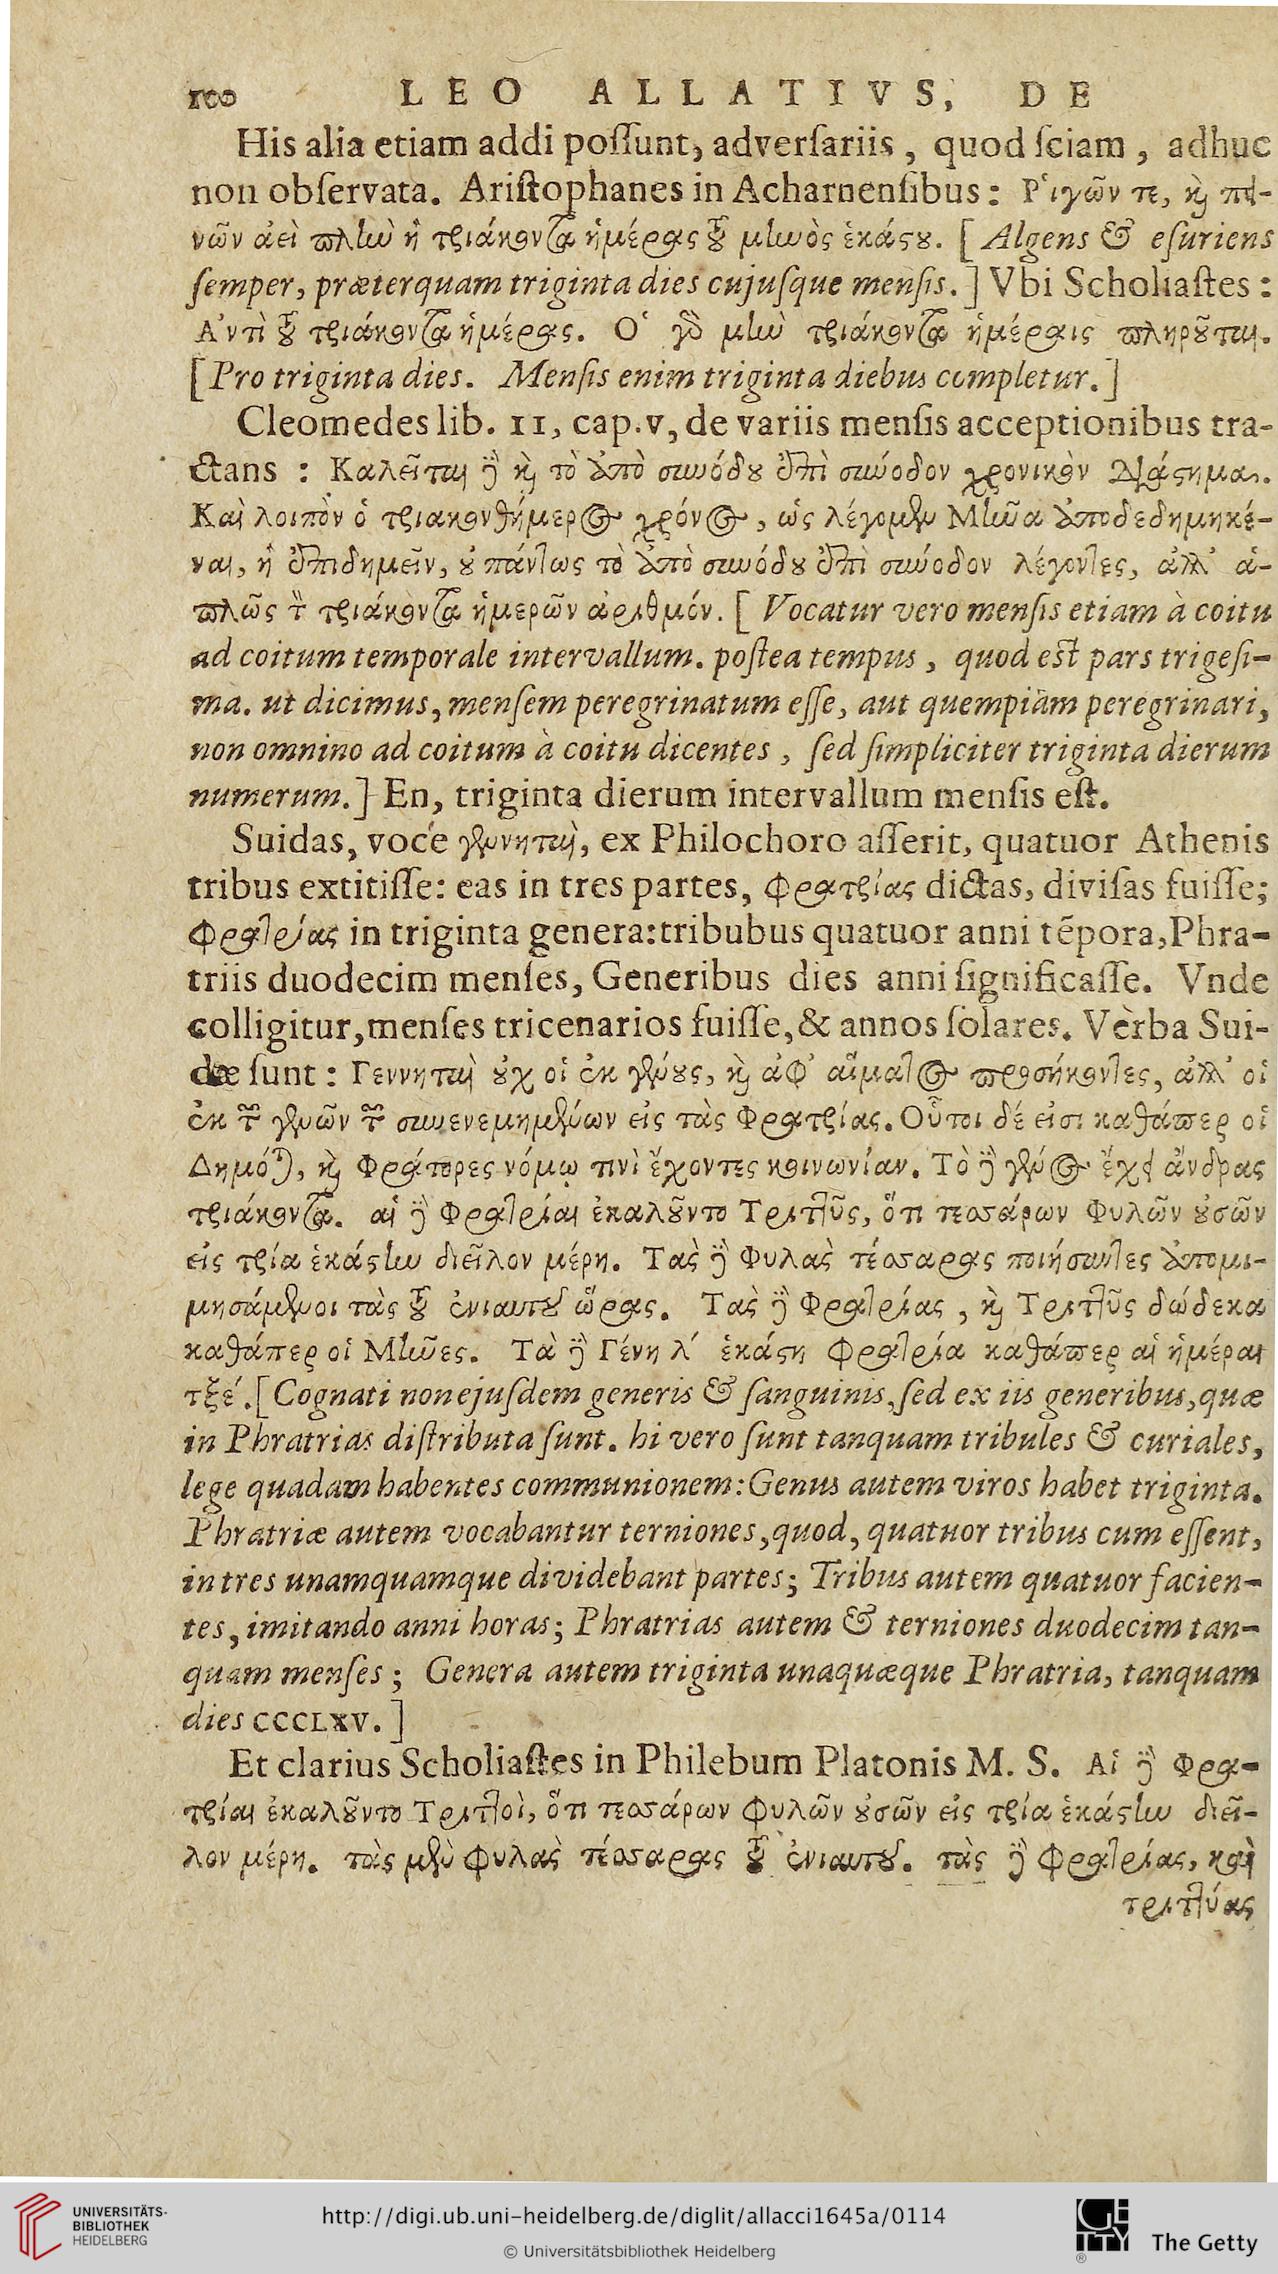 100 LEO ALLATIVS, DE
His alia etiam addi poſſunt, adverſariis, quod ſciam, adhuc
non obſervata. Ariſtophanes in Acharnenſibus: Ρ῾ιγῶν τε, καὶ πει-
νῶν ἀεὶ πλὴν ἢ τριάκοντα ἡμέρας τοῦ μηνὸς ἑκάστου. [Algens & eſuriens
ſemper, præterquam triginta dies cujuſque menſis.] Vbi Scholiaſtes:
Α᾿ντὶ τοῦ τριάκοντα ἡμέρας. Ο῾ γὸ μὴν τριάκοντα ἡμέραις πληροῦται.
[Pro triginta dies. Menſis enim triginta diebus completur.]
Cleomedes lib. II, cap. v, de variis menſis acceptionibus tra-
ctans: Καλεῖται δὲ καὶ τὸ ἀπὸ συνόδου ἐπὶ σύνοδον χρονικὸν διάστημα.
Καὶ λοιπὸν ὁ τριακονθήμερος χρόνος, ὡς λέγομεν Μῆνα ἀποδεδημηκέ-
ναι, ἢ ἐπιδημεῖν, οὐ πάντως τὸ ἀπὸ συνόδου ἐπὶ σύνοδον λέγοντες, ἀλλ᾿ ἁ-
πλῶς τὸν τριάκοντα ἡμερῶν ἀριθμόν. [Vocatur vero menſis etiam à coitu
ad coitum temporale intervallum. poſtea tempus, quod eſt pars trigeſi-
ma. ut dicimus, menſem peregrinatum eſſe, aut quempiam peregrinari,
non omnino ad coitum à coitu dicentes, ſed ſimpliciter triginta dierum
numerum.] En, triginta dierum intervallum menſis eſt.
Suidas, voce γεννηταὶ, ex Philochoro aſſerit, quatuor Athenis
tribus extitiſſe: eas in tres partes, φρατρίας dictas, diviſas fuiſſe;
φρατρίας in triginta genera: tribubus quatuor anni tẽpora, Phra-
triis duodecim menſes, Generibus dies anni ſignificaſſe. Vnde
colligitur, menſes tricenarios fuiſſe, & annos ſolares. Verba Sui-
dæ ſunt: Γεννηταὶ οὐχ οἱ ἐκ γένους, καὶ ἀφ᾿ αἵματος προσήκοντες, ἀλλ᾿ οἱ
ἐκ τῶν γενῶν τῶν συνενεμημένων εἰς τὰς Φρατρίας. Οὗτοι δέ εἰσι καθάπερ οἱ
Δημόται, καὶ Φράτορες νόμῳ τινὶ ἔχοντες κοινωνίαν. Τὸ δὲ γένος ἔχει ἄνδρας
τριάκοντα. αἱ δὲ Φρατρίαι ἐκαλοῦντο Τριττῦς, ὅτι τεσσάρων Φυλῶν οὐσῶν
εἰς τρία ἑκάστην διεῖλον μέρη. Τὰς δὲ Φυλὰς τέσσαρας ποιήσαντες ἀπομι-
μησάμενοι τὰς τοῦ ἐνιαυτοῦ ὥρας. Τὰς δὲ Φρατρίας, καὶ Τριττῦς δώδεκα
καθάπερ οἱ Μῆνες. Τὰ δὲ Γένη λ΄ ἑκάστη Φρατρία καθάπερ αἱ ἡμέραι
τξέ. [Cognati non ejuſdem generis & ſanguinis, ſed ex iis generibus, quæ
in Phratrias diſtributa ſunt. hi vero ſunt tanquam tribules & curiales,
lege quadam habentes communionem: Genus autem viros habet triginta.
Phratriæ autem vocabantur terniones, quod, quatuor tribus cum eſſent,
in tres unamquamque dividebant partes; Tribus autem quatuor facien-
tes, imitando anni horas; Phratrias autem & terniones duodecim tan-
quam menſes; Genera autem triginta unaquæque Phratria, tanquam
dies CCCLXV.]
Et clarius Scholiaſtes in Philebum Platonis M. S. Αἱ δὲ Φρα-
τρίαι ἐκαλοῦντο Τριττοὶ, ὅτι τεσσάρων φυλῶν οὐσῶν εἰς τρία ἑκάστην διεῖ-
λον μέρη. τὰς μὲν φυλὰς τέσσαρας τοῦ ἐνιαυτοῦ. τὰς δὲ φρατρίας, καὶ
τριττύας
UNIVERSITÄTS-
BIBLIOTHEK
HEIDELBERG
http://digi.ub.uni-heidelberg.de/diglit/allacci1645a/0114
© Universitätsbibliothek Heidelberg
GETTY
®
The Getty